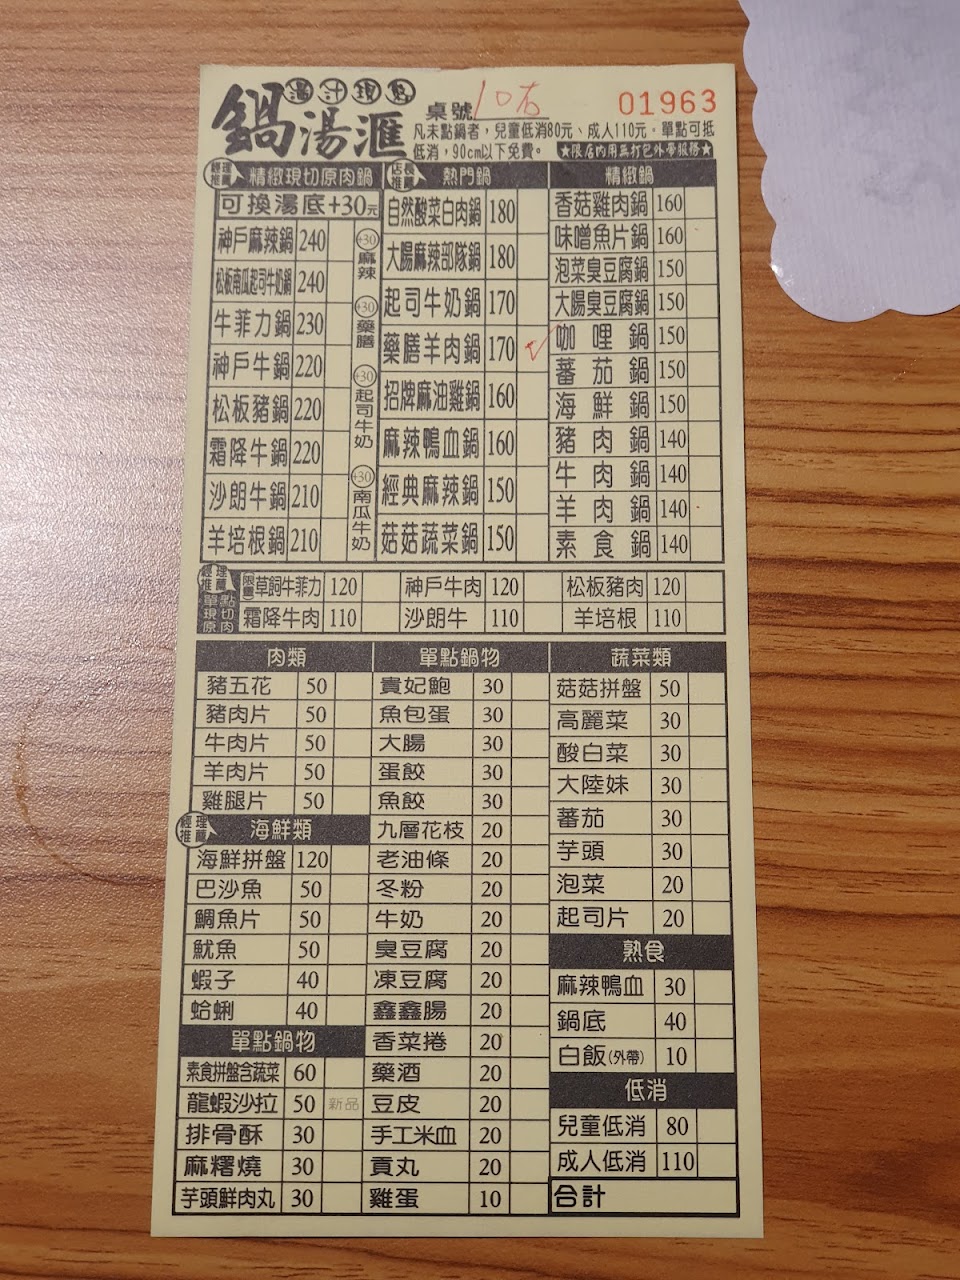 湯汁現熬
鍋湯滙
桌號 10右
01963
凡未點鍋者，兒童低消80元、成人110元。單點可抵
低消，90cm以下免費。 ★限店內用無打包外帶服務★
經理推薦 精緻現切原肉鍋
可換湯底+30元
神戶麻辣鍋 240
松板南瓜起司牛奶鍋 240
牛菲力鍋 230
神戶牛鍋 220
松板豬鍋 220
霜降牛鍋 220
沙朗牛鍋 210
羊培根鍋 210
+30 麻辣
+30 藥膳
+30 起司牛奶
+30 南瓜牛奶
店長推薦 熱門鍋
自然酸菜白肉鍋 180
大腸麻辣部隊鍋 180
起司牛奶鍋 170
藥膳羊肉鍋 170 ✓
招牌麻油雞鍋 160
麻辣鴨血鍋 160
經典麻辣鍋 150
菇菇蔬菜鍋 150
精緻鍋
香菇雞肉鍋 160
味噌魚片鍋 160
泡菜臭豆腐鍋 150
大腸臭豆腐鍋 150
咖哩鍋 150
蕃茄鍋 150
海鮮鍋 150
豬肉鍋 140
牛肉鍋 140
羊肉鍋 140
素食鍋 140
經理推薦 單點現切原肉
限量 草飼牛菲力 120 神戶牛肉 120 松板豬肉 120
霜降牛肉 110 沙朗牛 110 羊培根 110
肉類
豬五花 50
豬肉片 50
牛肉片 50
羊肉片 50
雞腿片 50
經理推薦 海鮮類
海鮮拼盤 120
巴沙魚 50
鯛魚片 50
魷魚 50
蝦子 40
蛤蜊 40
單點鍋物
素食拼盤含蔬菜 60
龍蝦沙拉 50 新品
排骨酥 30
麻糬燒 30
芋頭鮮肉丸 30
單點鍋物
貴妃鮑 30
魚包蛋 30
大腸 30
蛋餃 30
魚餃 30
九層花枝 20
老油條 20
冬粉 20
牛奶 20
臭豆腐 20
凍豆腐 20
鑫鑫腸 20
香菜捲 20
藥酒 20
豆皮 20
手工米血 20
貢丸 20
雞蛋 10
蔬菜類
菇菇拼盤 50
高麗菜 30
酸白菜 30
大陸妹 30
蕃茄 30
芋頭 30
泡菜 20
起司片 20
熟食
麻辣鴨血 30
鍋底 40
白飯(外帶) 10
低消
兒童低消 80
成人低消 110
合計